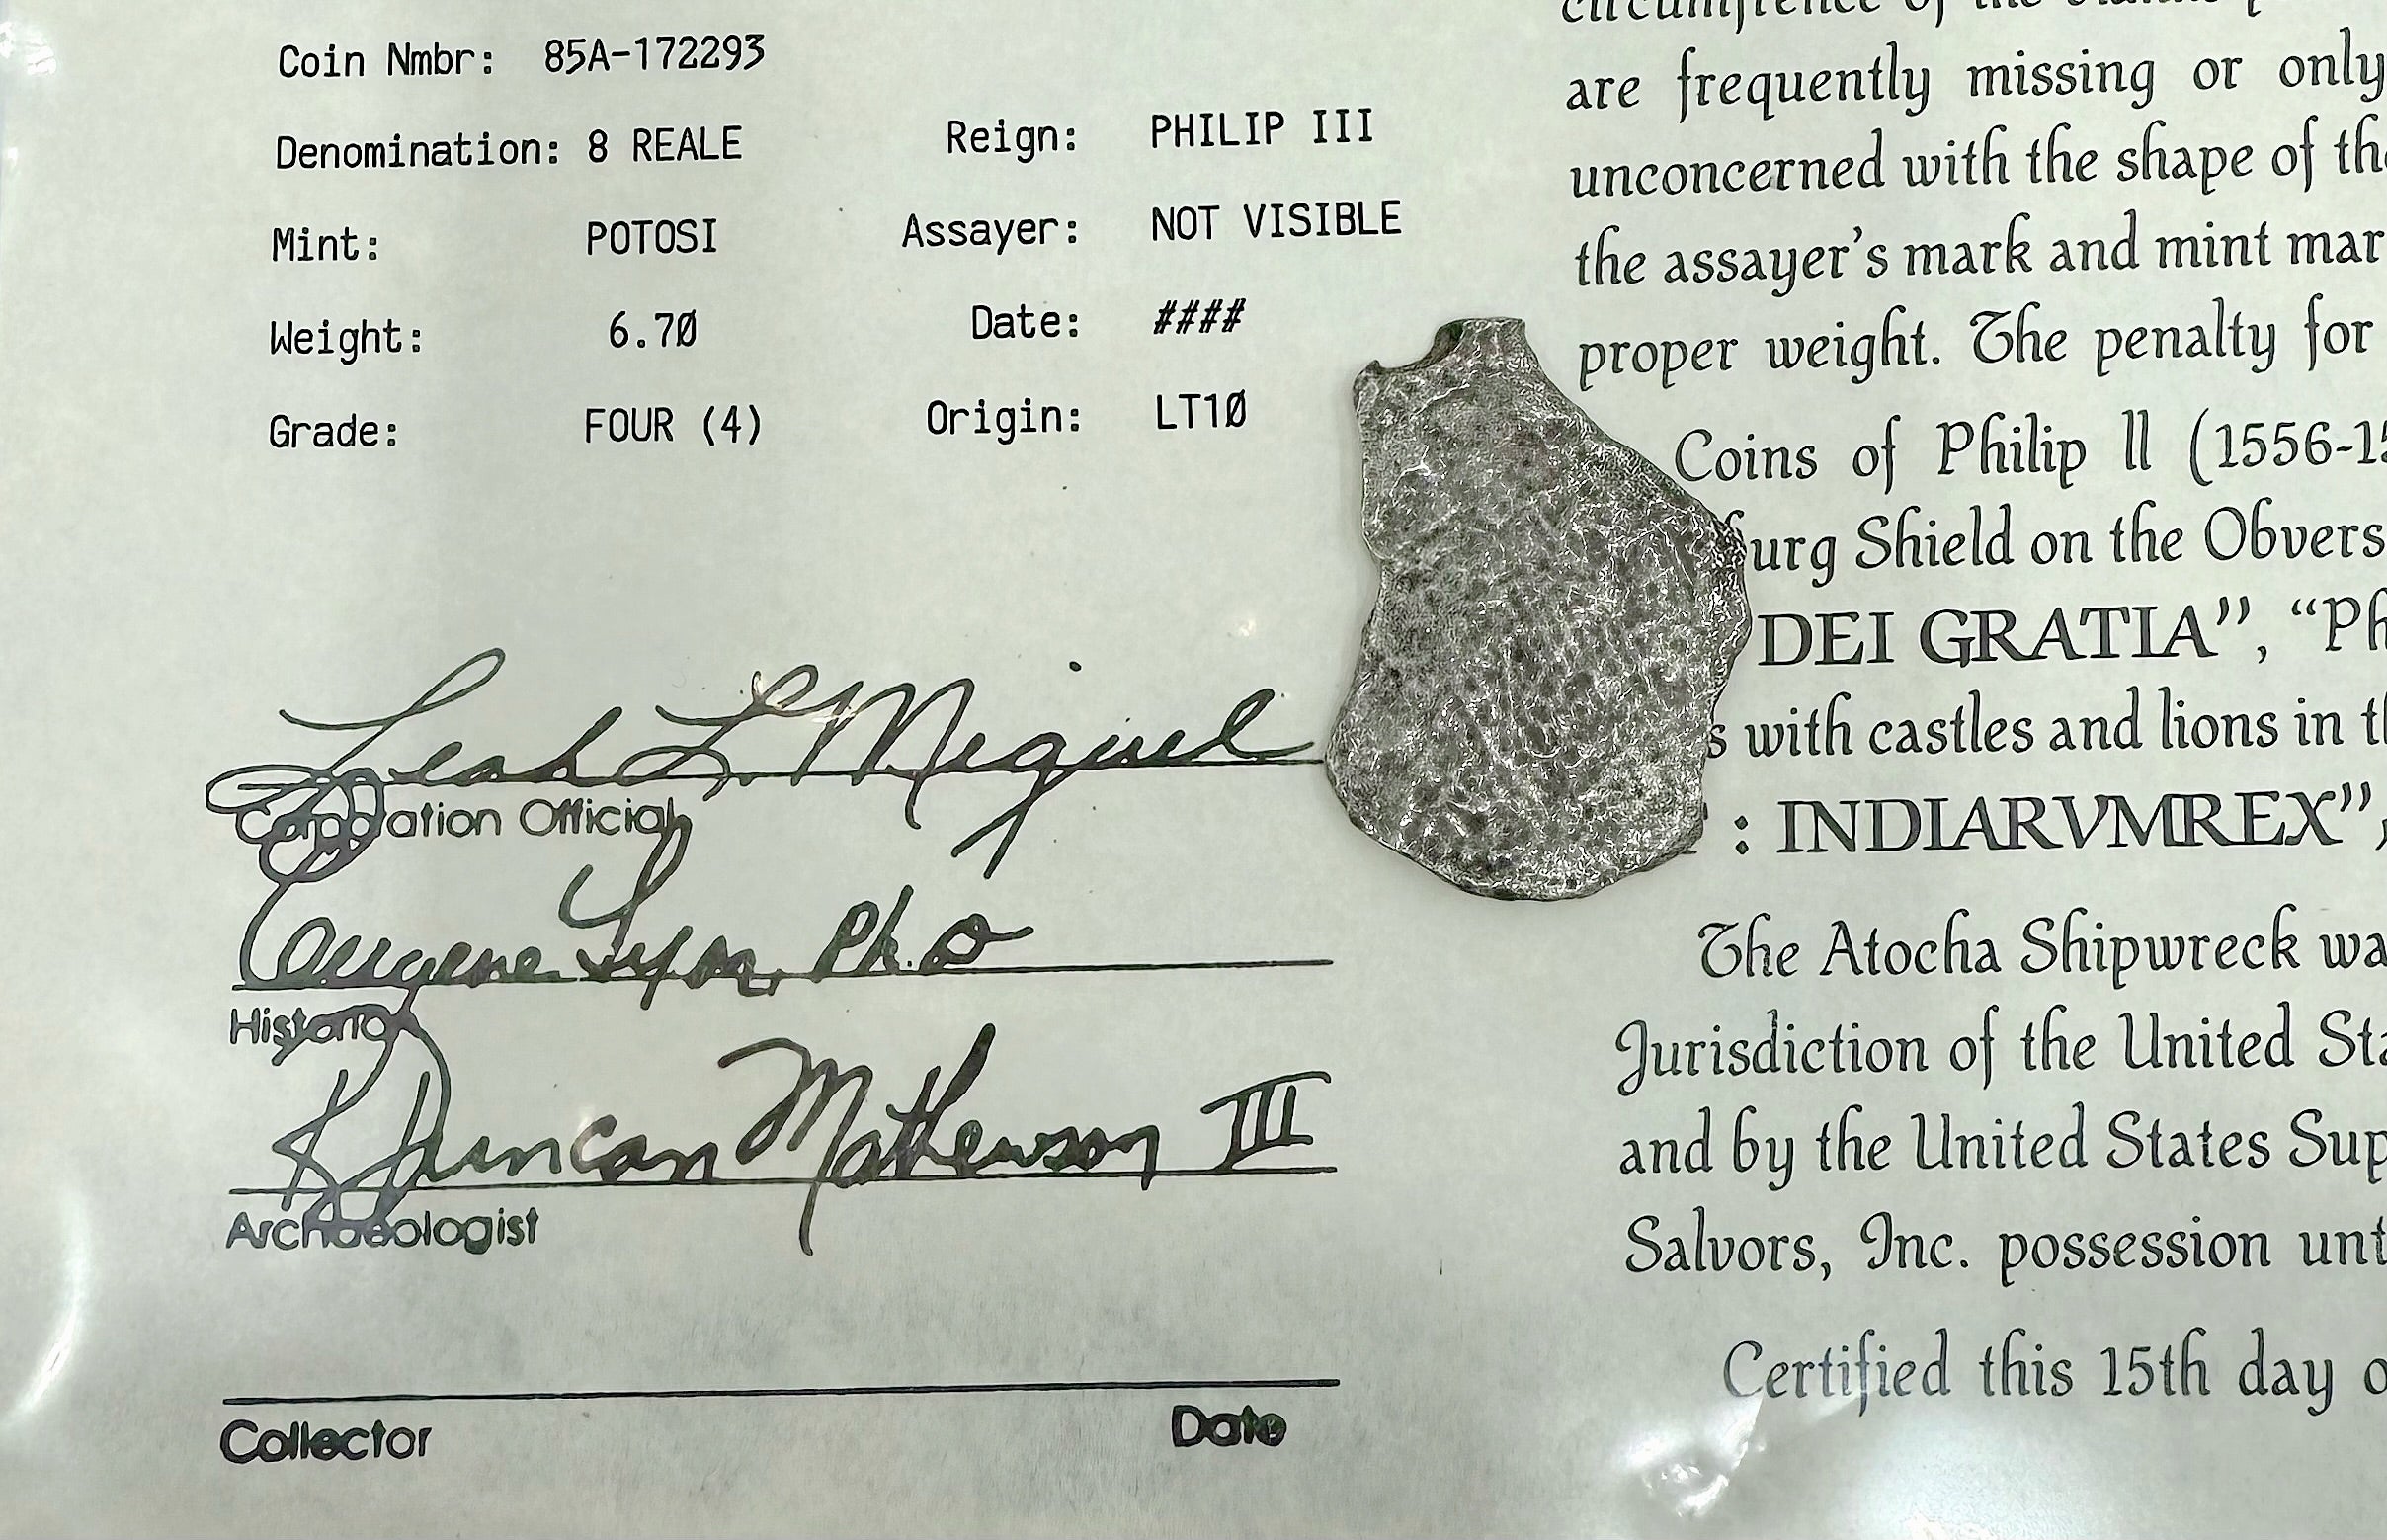 Coin Nmbr: 85A-172293
Denomination: 8 REALE
Reign: PHILIP III
Mint: POTOSI
Assayer: NOT VISIBLE
Weight: 6.70
Date: ####
Grade: FOUR (4)
Origin: LT10
Leah L. Miguel
Corporation Official
Eugene Lyon, Ph.D
Historian
R Duncan Mathewson III
Archaeologist
Collector Date
of the
are frequently missing or only
unconcerned with the shape of
the assayer's mark and mint
proper weight. The penalty for
Coins of Philip II (1556-15
urg Shield on the Obvers
DEI GRATIA", "Ph
s with castles and lions in
: INDIARVMREX",
The Atocha Shipwreck wa
Jurisdiction of the United Sta
and by the United States Sup
Salvors, Inc. possession unt
Certified this 15th day o